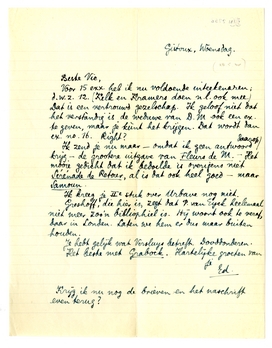 Gistoux, Woensdag.
Beste Vic,
Voor 15 ex. heb ik nu voldoende intekenaren;
d.w.z. 12. (Kelk en Kramers doen n.l. ook mee)
Dat is een vertrouwd gezelschap. Ik geloof niet dat
het verstandig is de weduwe van D.M. ook een ex.
te geven, maar je kent het krijgen. Dat wordt dan
ex. no. 16. Right?
Ik zend je nu maar – omdat ik geen antwoord
krijg – de grootere uitgave van Fleurs de M. – Het
mooie gedicht dat ik bedoelde is overigens niet
Sérénade de Retour, al is dat ook heel goed – maar
Samoun
Ik kreeg je 2e stuk over Urbane nog niet.
Greshoff, die hier is, zegt dat v. Eyck heelemaal
niet meer zoo'n billepsbief is. Hij woont ook te veraf,
daar in Londen. Laten we hem er dus maar buiten
houden.
Je hebt gelijk wat Versluys betreft. Doodtdonderen.
Het beste met Graback. Hartelijke groeten van
je
Ed.
Krijg ik nu nog de brieven en het naschrift
even terug?